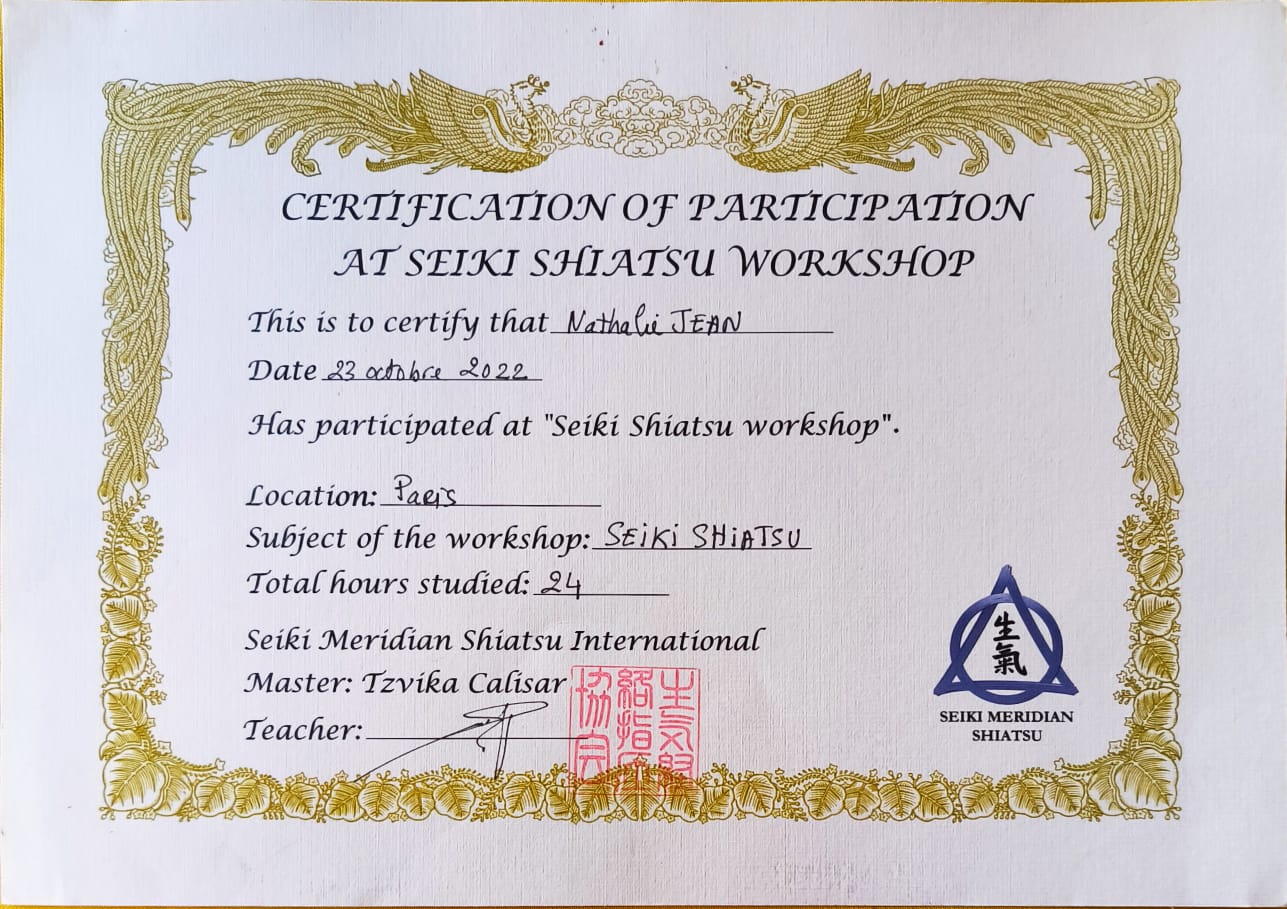 CERTIFICATION OF PARTICIPATION
AT SEIKI SHIATSU WORKSHOP
This is to certify that Nathalie JEAN
Date 23 octobre 2022
Has participated at "Seiki Shiatsu workshop".
Location: Paris
Subject of the workshop: SEiKi SHiATSU
Total hours studied: 24
Seiki Meridian Shiatsu International
Master: Tzvika Calisar
Teacher:
生氣
SEIKI MERIDIAN
SHIATSU